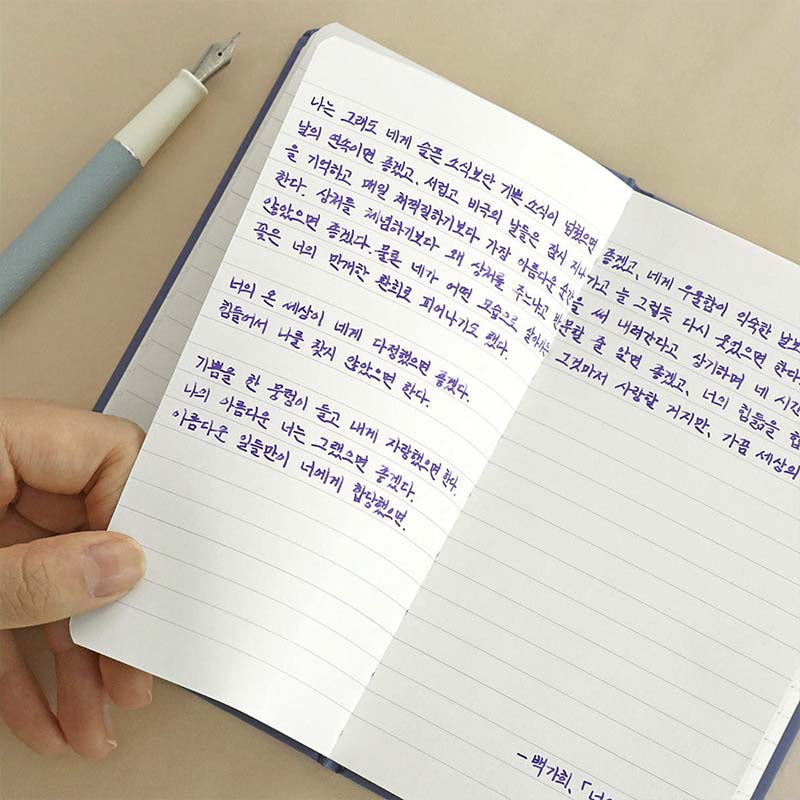 나는 그래도 네게 슬픈 소식보단 기쁜 소식이 넘쳤으면 좋겠고, 네게 우울함이 익숙한 날보
날의 연속이면 좋겠고. 서럽고 비극의 날들은 잠시 지나가고 늘 그렇듯 다시 웃었으면 한다.
을 기억하고 매일 채찍질하기보다 가장 아름다운 순간을 써 내려간다고 상기하며 네 시간
한다. 상처를 체념하기보다 왜 상처를 주느냐고 반문할 줄 알면 좋겠고, 너의 힘듦을 합
않았으면 좋겠다. 물론 네가 어떤 모습으로 살아가든 그것마저 사랑할 거지만, 가끔 세상의
꽃은 너의 만개한 환희로 피어나기도 했다.
너의 온 세상이 네게 다정했으면 좋겠다.
힘들어서 나를 찾지 않았으면 한다.
기쁨을 한 뭉텅이 들고 내게 자랑했으면 한다.
나의 아름다운 너는 그랬으면 좋겠다.
아름다운 일들만이 너에게 합당했으면.
- 백가희, 「너의